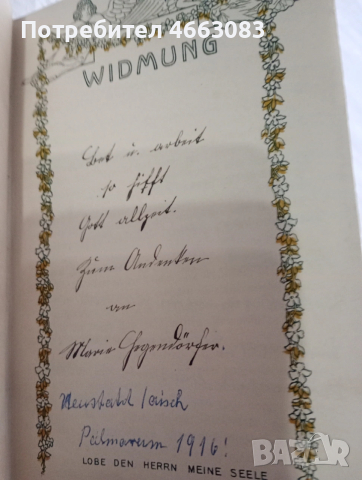 Потребител 4663083
WIDMUNG
Bet u. arbeit
so hilft
Gott allzeit.
Zum Andenken
an
Marie Hegendörfer.
Neustadt /Aisch
Palmarum 1916!
LOBE DEN HERRN MEINE SEELE
BAZAR
bg